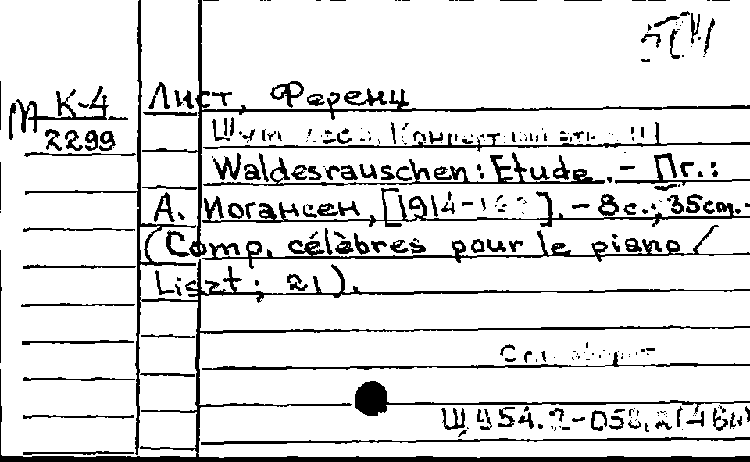 М К-4
Лист, Ференц
2299
Шум леса. [Концертный этюд]
Waldesrauschen: Etude. - Пг.:
А. Иогансен, [1914-19 ]. - 8 с.; 35 cm. -
(Comp. célèbres pour le piano /
Liszt; 21).
См. оборот
Щ 954.2-058.2(4